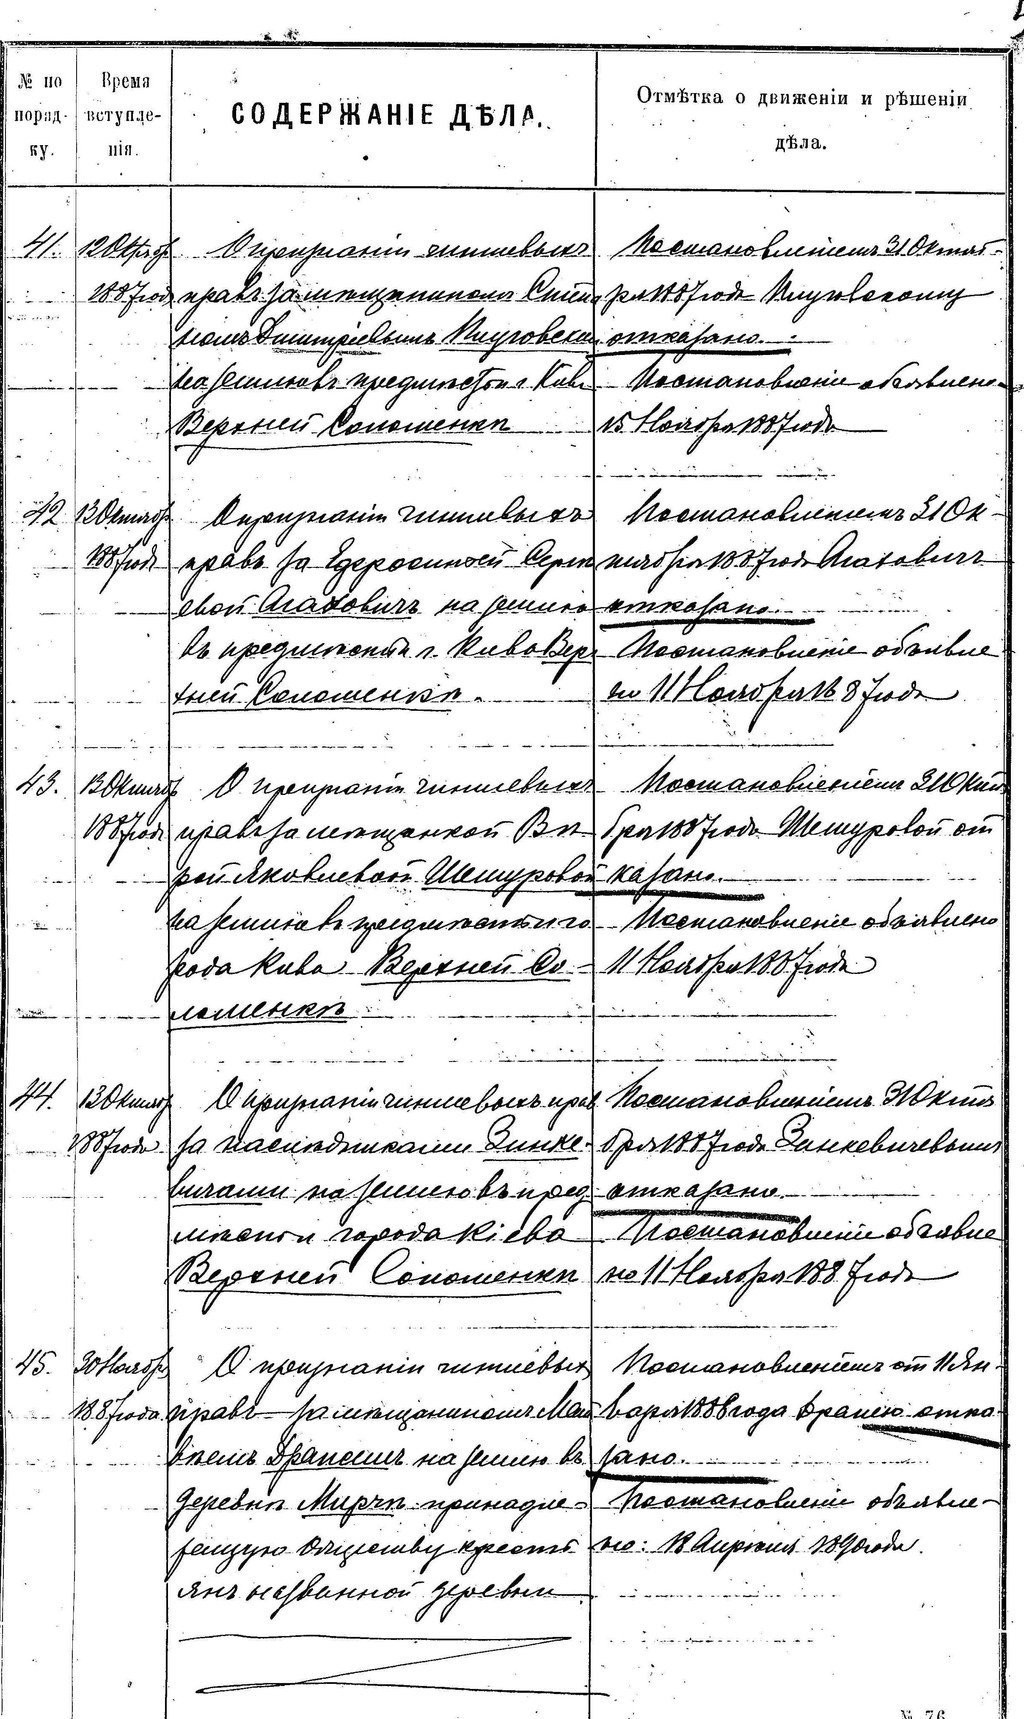 № по порядку.
Время вступленія.
СОДЕРЖАНІЕ ДѢЛА.
Отмѣтка о движеніи и рѣшеніи дѣла.
41.
12 Октября
1887 года
О признаніи чиншевыхъ
правъ за мещаниномъ
Дмитріевымъ
на землю въ предмѣстьи г. Кіева
Верхней Соломенкѣ
Постановленіемъ 31 Октяб-
ря 1887 года
отказано.
Постановленіе объявлено
15 Ноября 1887 года
42
13 Октября
1887 года
О признаніи чиншевыхъ
правъ за
Агатовичъ на землю
въ предмѣстьи г. Кіева Вер-
хней Соломенкѣ.
Постановленіемъ 31 Ок-
тября 1887 года Агатовичъ
отказано.
Постановленіе объявле
но 11 Ноября 1887 года
43.
13 Октября
1887 года
О признаніи чиншевыхъ
правъ за мещанкой Вѣ
рой Яковлевой Шемуровой
на землю въ предмѣстьи го
рода Кіева Верхней Со-
ломенкѣ
Постановленіемъ 31 Октя
бря 1887 года Шемуровой от
казано.
Постановленіе объявлено
11 Ноября 1887 года
44.
13 Октября
1887 года
О признаніи чиншевыхъ правъ
за наслѣдниками Зинке-
вичами на землю въ пред
мѣстьи города Кіева
Верхней Соломенкѣ
Постановленіемъ 31 Октя
бря 1887 года Зинкевичевымъ
отказано.
Постановленіе объявле
но 11 Ноября 1887 года
45.
30 Ноября
1887 года
О признаніи чиншевыхъ
правъ за мещаниномъ Мат
вѣемъ на землю въ
деревнѣ принадле-
жащую Обществу кресть
янъ названной деревни
Постановленіемъ от 11 Ян-
варя 1888 года отка-
зано.
Постановленіе объявле-
но: 18 Апрѣля 1890 года.
№ 76